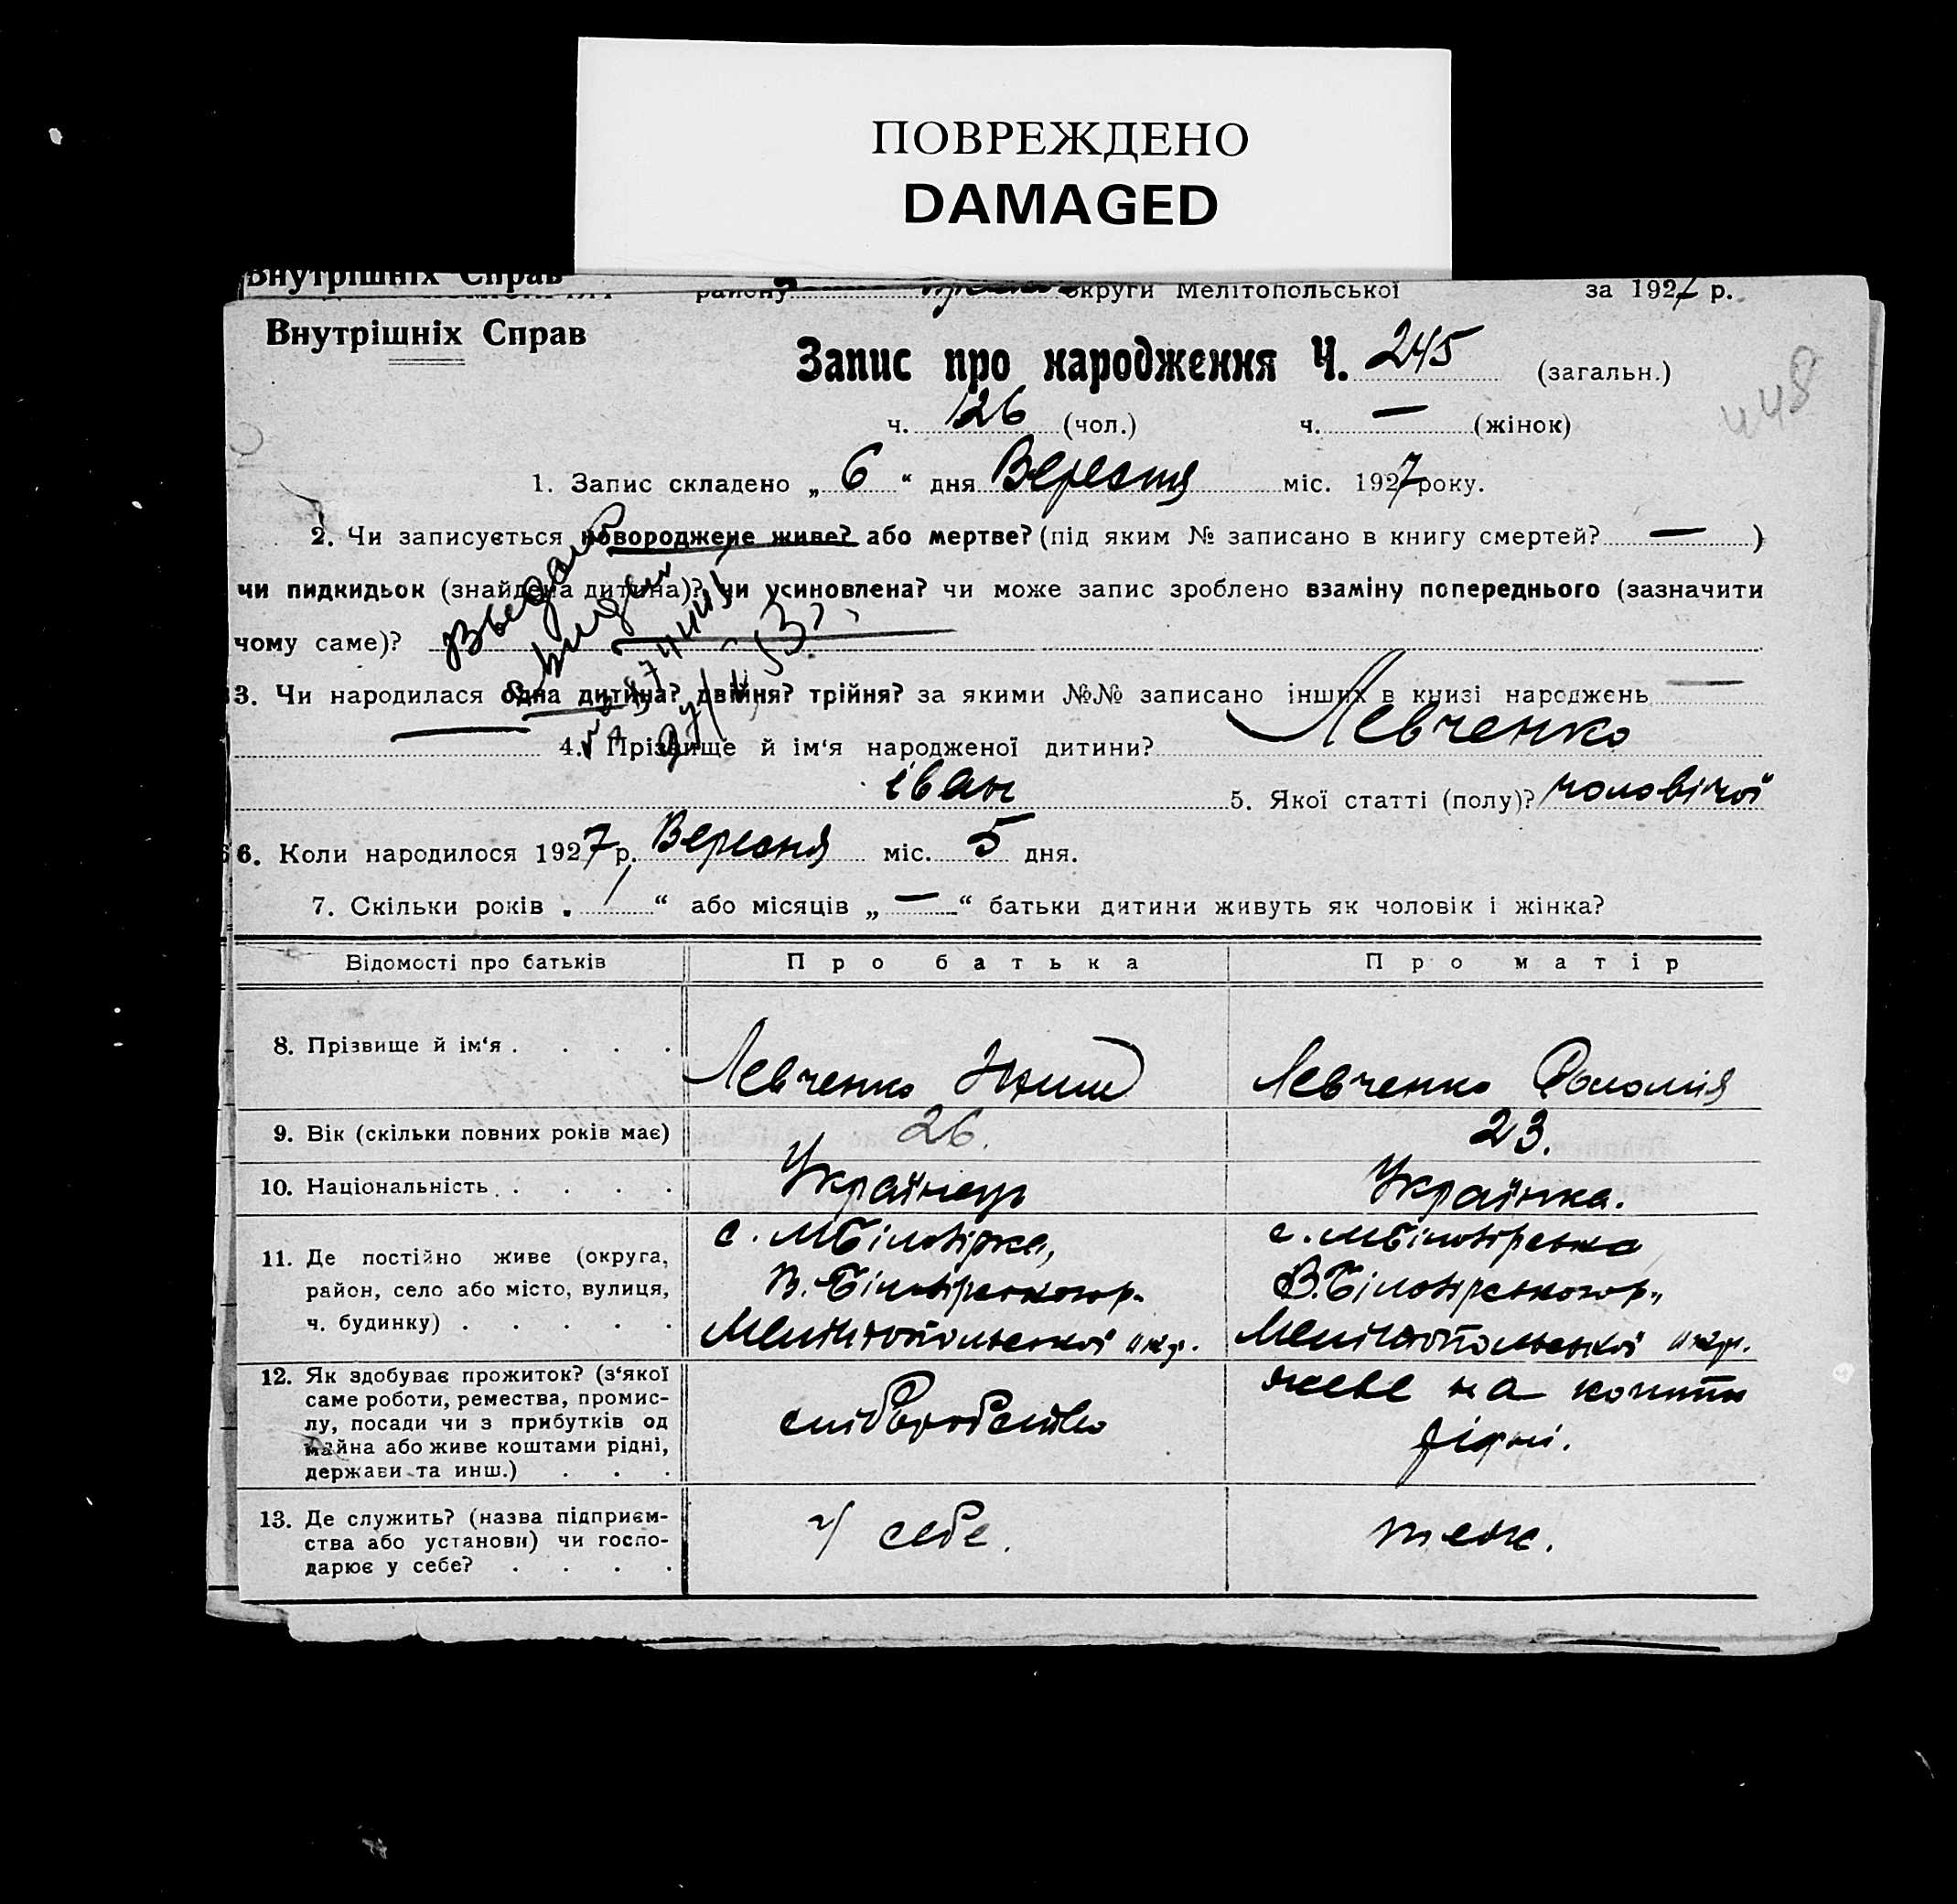 ПОВРЕЖДЕНО
DAMAGED
Внутрішніх Справ
району округи Мелітопольської за 1927 р.
Внутрішніх Справ
Запис про народження Ч. 245 (загальн.)
448
ч. 126 (чол.) ч. — (жінок)
1. Запис складено „ 6 “ дня Вересня міс. 1927 року.
2. Чи записується новороджене живе? або мертве? (під яким № записано в книгу смертей? — )
чи пидкидьок (знайдена дитина)? чи усиновлена? чи може запис зроблено взаміну попереднього (зазначити
чому саме)? —
3. Чи народилася одна дитина? двійня? трійня? за якими №№ записано інших в книзі народжень —
— 4. Прізвище й ім‘я народженої дитини? Левченко
іван 5. Якої статті (полу)? чоловічої
6. Коли народилося 1927 р. Вересня міс. 5 дня.
7. Скільки років „ 1 “ або місяців „ — “ батьки дитини живуть як чоловік і жінка?
Відомості про батьків Про батька Про матір
8. Прізвище й ім‘я . . . . Левченко Левченко
9. Вік (скільки повних років має) 26. 23.
10. Національність . . . . Українець Українка.
11. Де постійно живе (округа, с. МБілозірка, с. МБілозірка
район, село або місто, вулиця, В.Білозірського р. В.Білозірського р.,
ч. будинку) . . . . . Мелітопольської окр. Мелітопольської окр.
12. Як здобуває прожиток? (з‘якої
саме роботи, ремества, промис- живе на кошти
лу, посади чи з прибутків од хліборобство
майна або живе коштами рідні, рідні.
держави та инш.) . . .
13. Де служить? (назва підприєм-
ства або установи) чи госпо- у себе. теж.
дарює у себе? . . . .